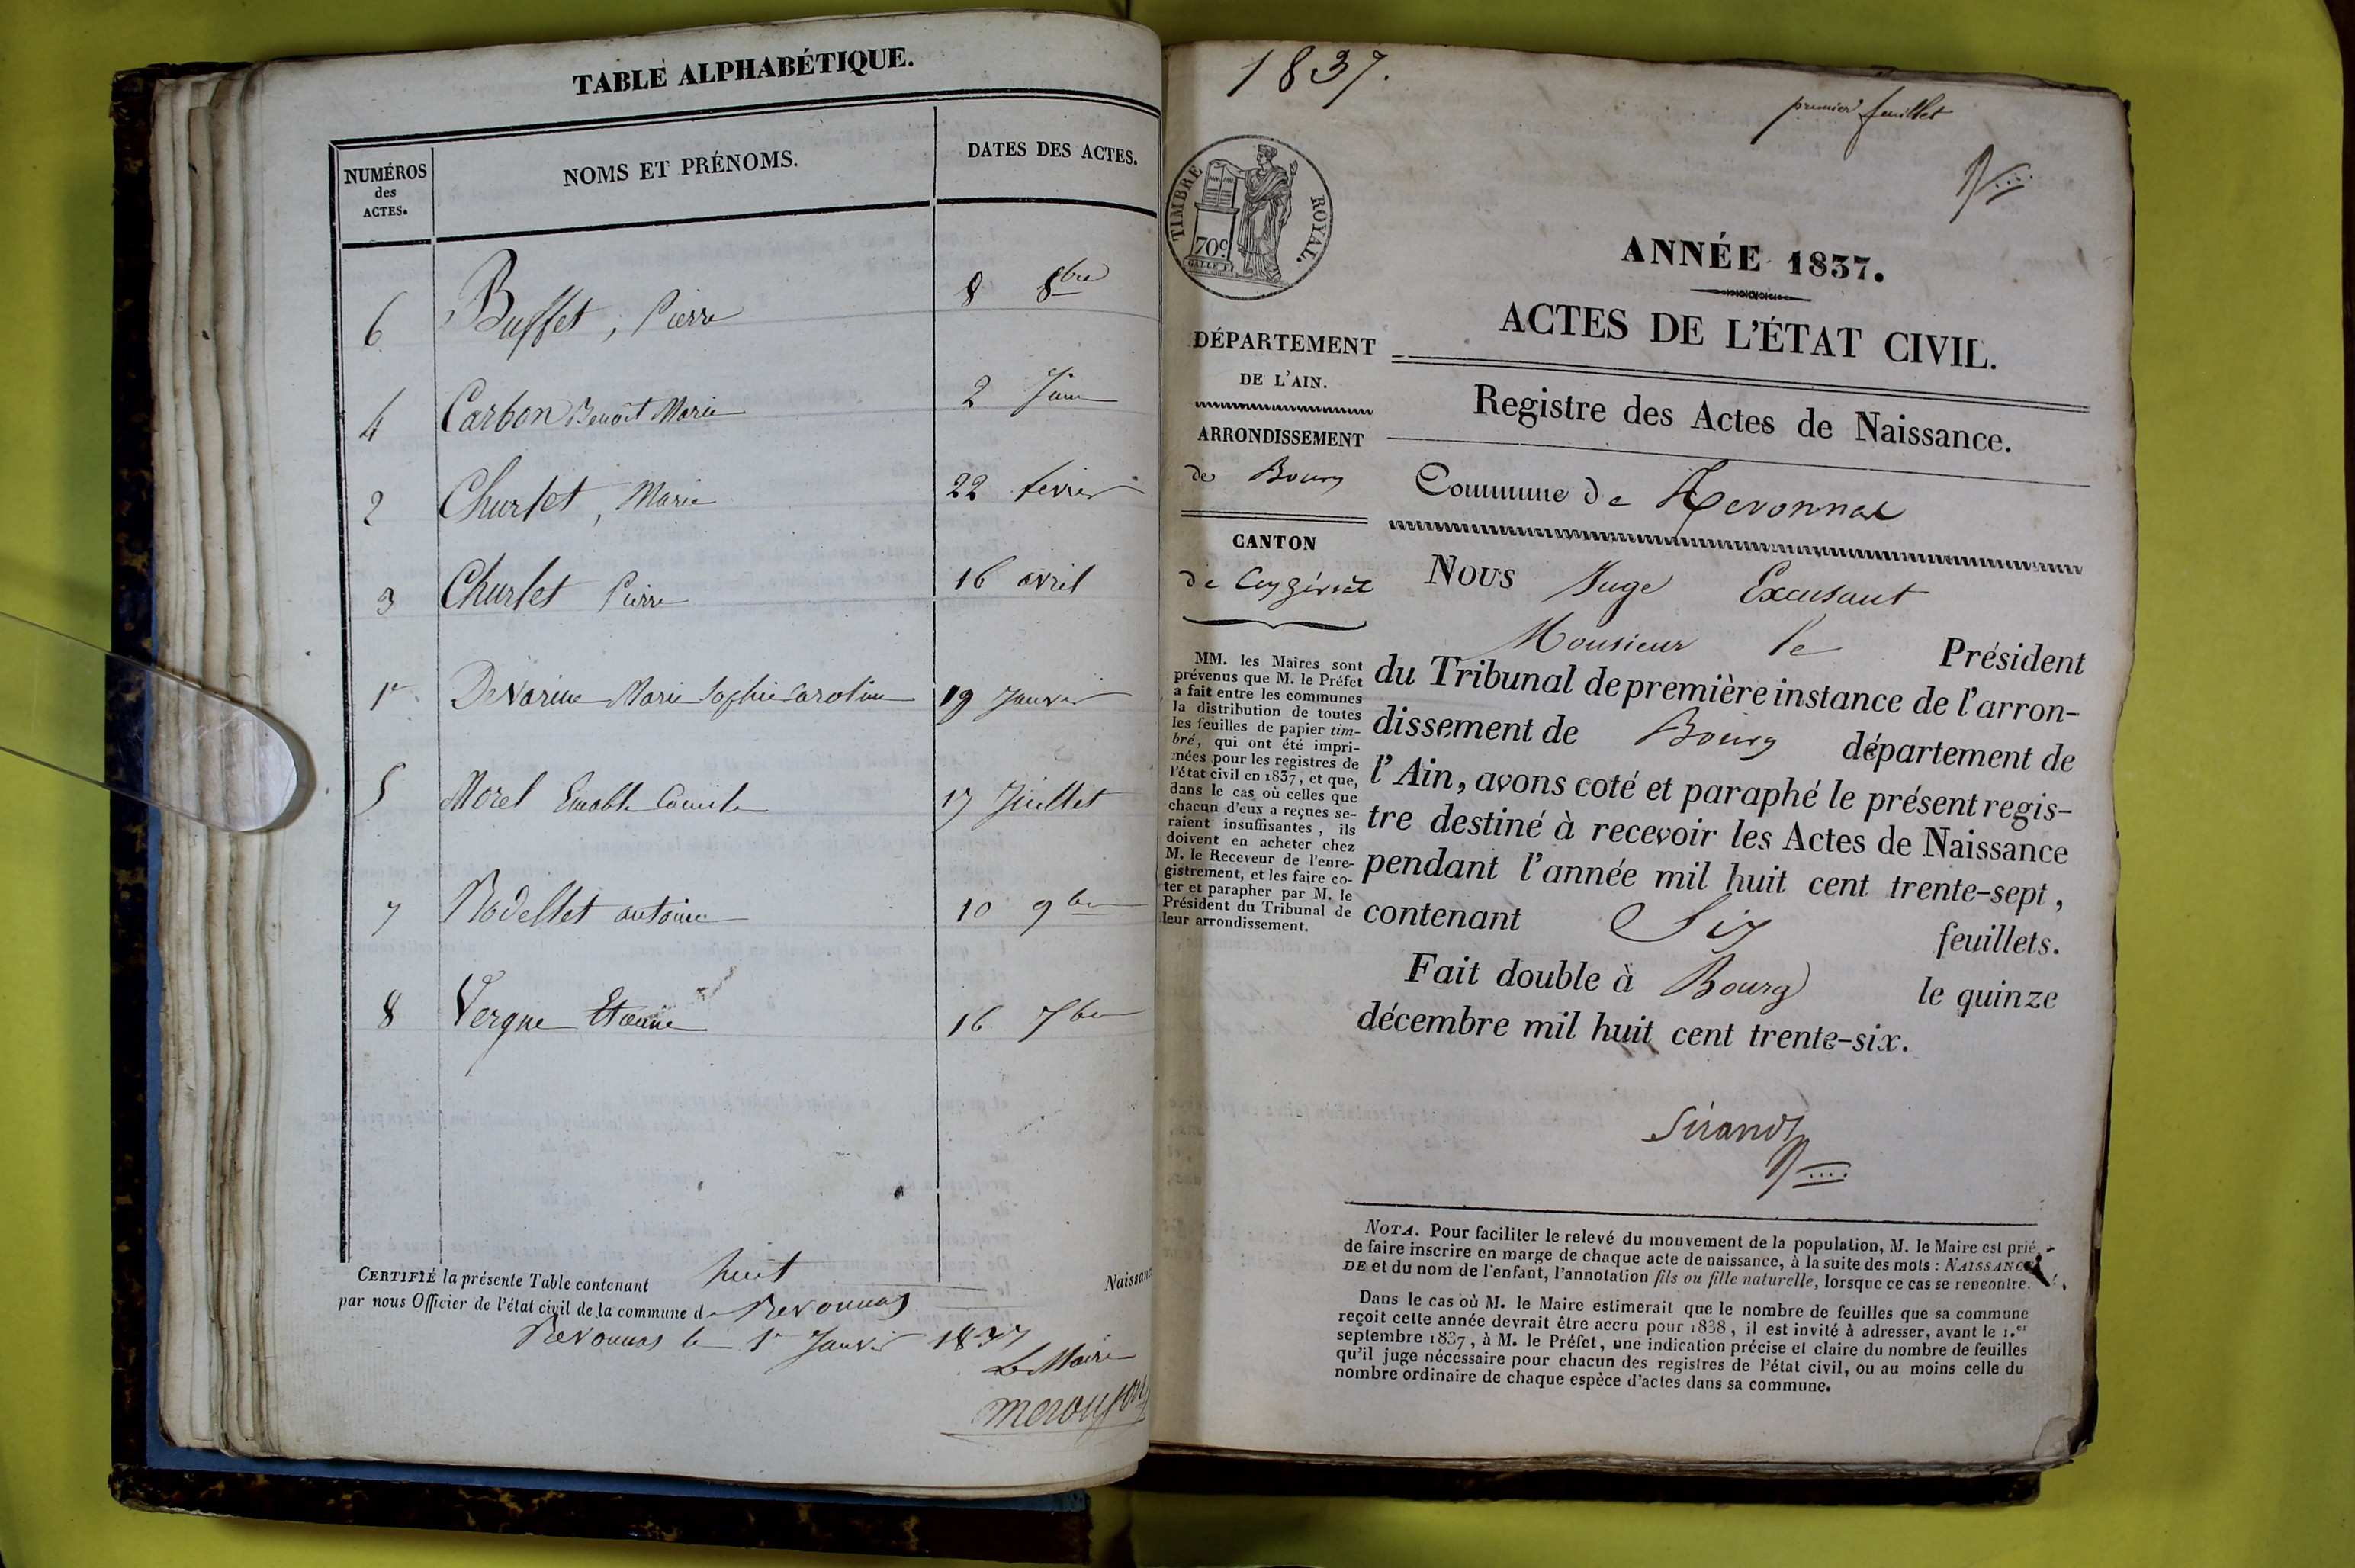 TABLE ALPHABÉTIQUE.
NUMÉROS des ACTES. NOMS ET PRÉNOMS. DATES DES ACTES.
6 Buffet, Pierre 8 8bre
4 Carbon Benoît Marie 2 Juin
2 Churlet, Marie 22 fevrier
3 Churlet Pierre 16 avril
1er DeVarine Marie Sophie Caroline 19 Janvier
5 Morel 17 Juillet
7 Rodellet antoine 10 9bre
8 Vergne Etienne 16 7bre
CERTIFIÉ la présente Table contenant huit Naissance
par nous Officier de l'état civil de la commune de Revonnas
Revonnas le 1er Janvier 1837
Le Maire
1837.
premier feuillet
TIMBRE ROYAL.
70c.
ANNÉE 1837.
ACTES DE L'ÉTAT CIVIL.
Registre des Actes de Naissance.
Commune de Revonnas
DÉPARTEMENT
DE L'AIN.
ARRONDISSEMENT
de Bourg
CANTON
de Ceyzériat
MM. les Maires sont
prévenus que M. le Préfet
a fait entre les communes
la distribution de toutes
les feuilles de papier tim-
bré, qui ont été impri-
mées pour les registres de
l'état civil en 1837, et que,
dans le cas où celles que
chacun d'eux a reçues se-
raient insuffisantes, ils
doivent en acheter chez
M. le Receveur de l'enre-
gistrement, et les faire co-
ter et parapher par M. le
Président du Tribunal de
leur arrondissement.
Nous Juge Excusant
Monsieur le Président
du Tribunal de première instance de l'arron-
dissement de Bourg département de
l'Ain, avons coté et paraphé le présent regis-
tre destiné à recevoir les Actes de Naissance
pendant l'année mil huit cent trente-sept,
contenant Six feuillets.
Fait double à Bourg le quinze
décembre mil huit cent trente-six.
Sirand
NOTA. Pour faciliter le relevé du mouvement de la population, M. le Maire est prié
de faire inscrire en marge de chaque acte de naissance, à la suite des mots : NAISSANCE
DE et du nom de l'enfant, l'annotation fils ou fille naturelle, lorsque ce cas se rencontre.
Dans le cas où M. le Maire estimerait que le nombre de feuilles que sa commune
reçoit cette année devrait être accru pour 1838, il est invité à adresser, avant le 1.er
septembre 1837, à M. le Préfet, une indication précise et claire du nombre de feuilles
qu'il juge nécessaire pour chacun des registres de l'état civil, ou au moins celle du
nombre ordinaire de chaque espèce d'actes dans sa commune.